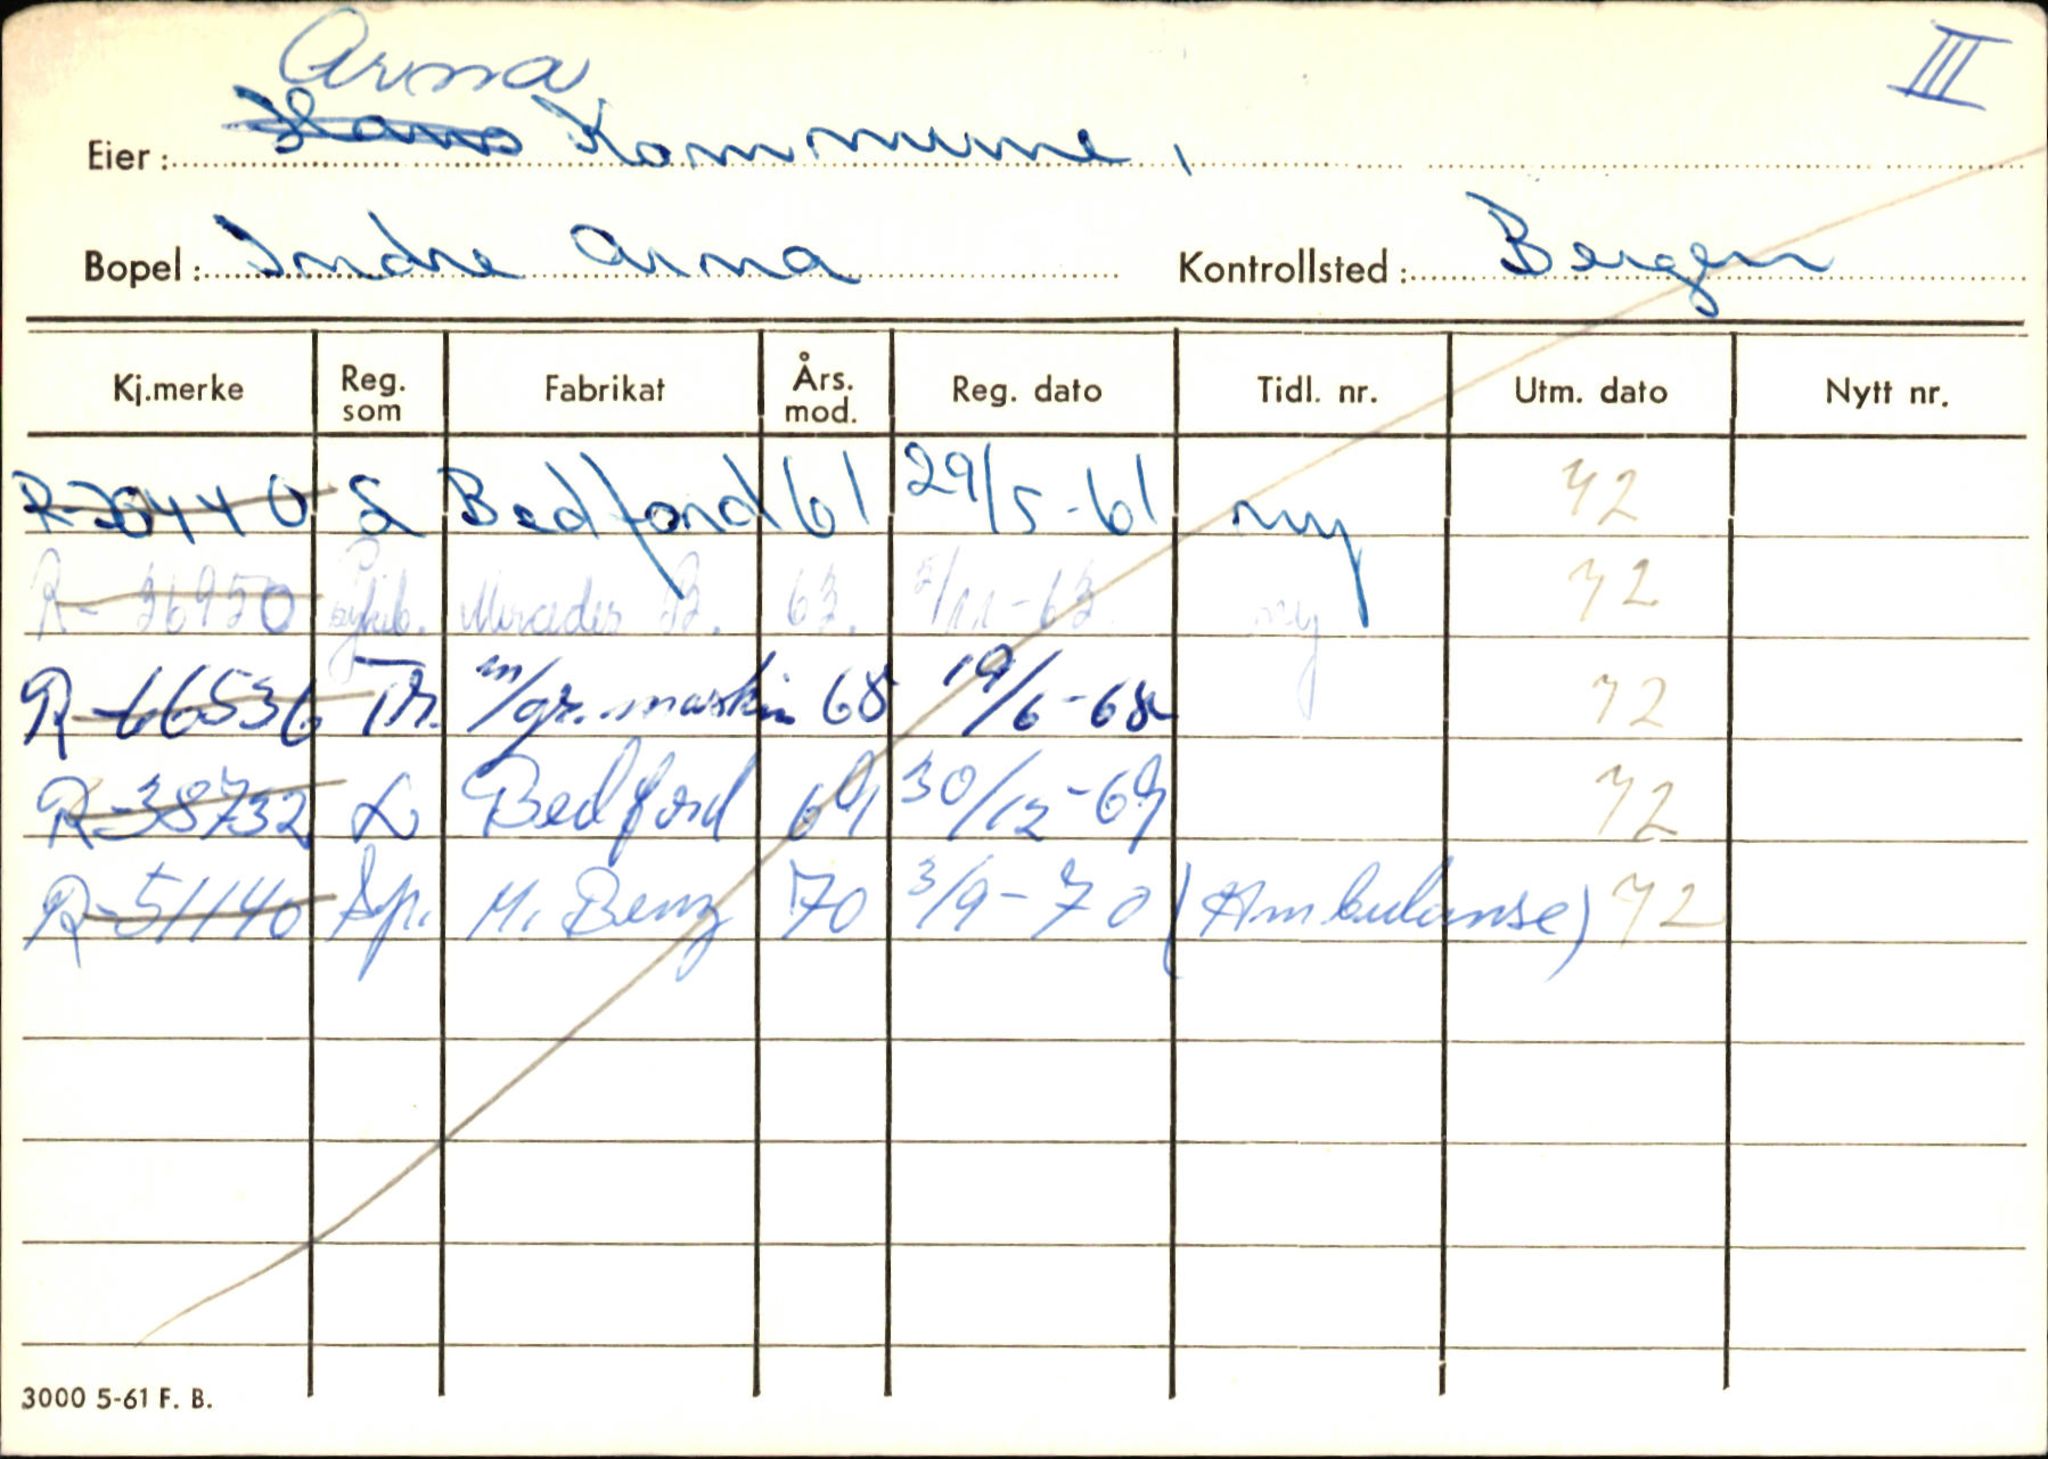 III
Arna
Eier: Haus Kommune,
Bopel: Indre Arna Kontrollsted: Bergen
Kj.merke Reg. som Fabrikat Års. mod. Reg. dato Tidl. nr. Utm. dato Nytt nr.
R-20440 L Bedford 61 29/5-61 ny 72
R-36950 Mercedes B. 63. 2/11-63. ny 72
R-66536 Tr. m/gr.maskin 68 19/6-68 72
R-38732 L Bedford 69 30/12-69 72
R-51140 Sp. M. Benz 70 3/9-70 (Ambulanse) 72
3000 5-61 F. B.